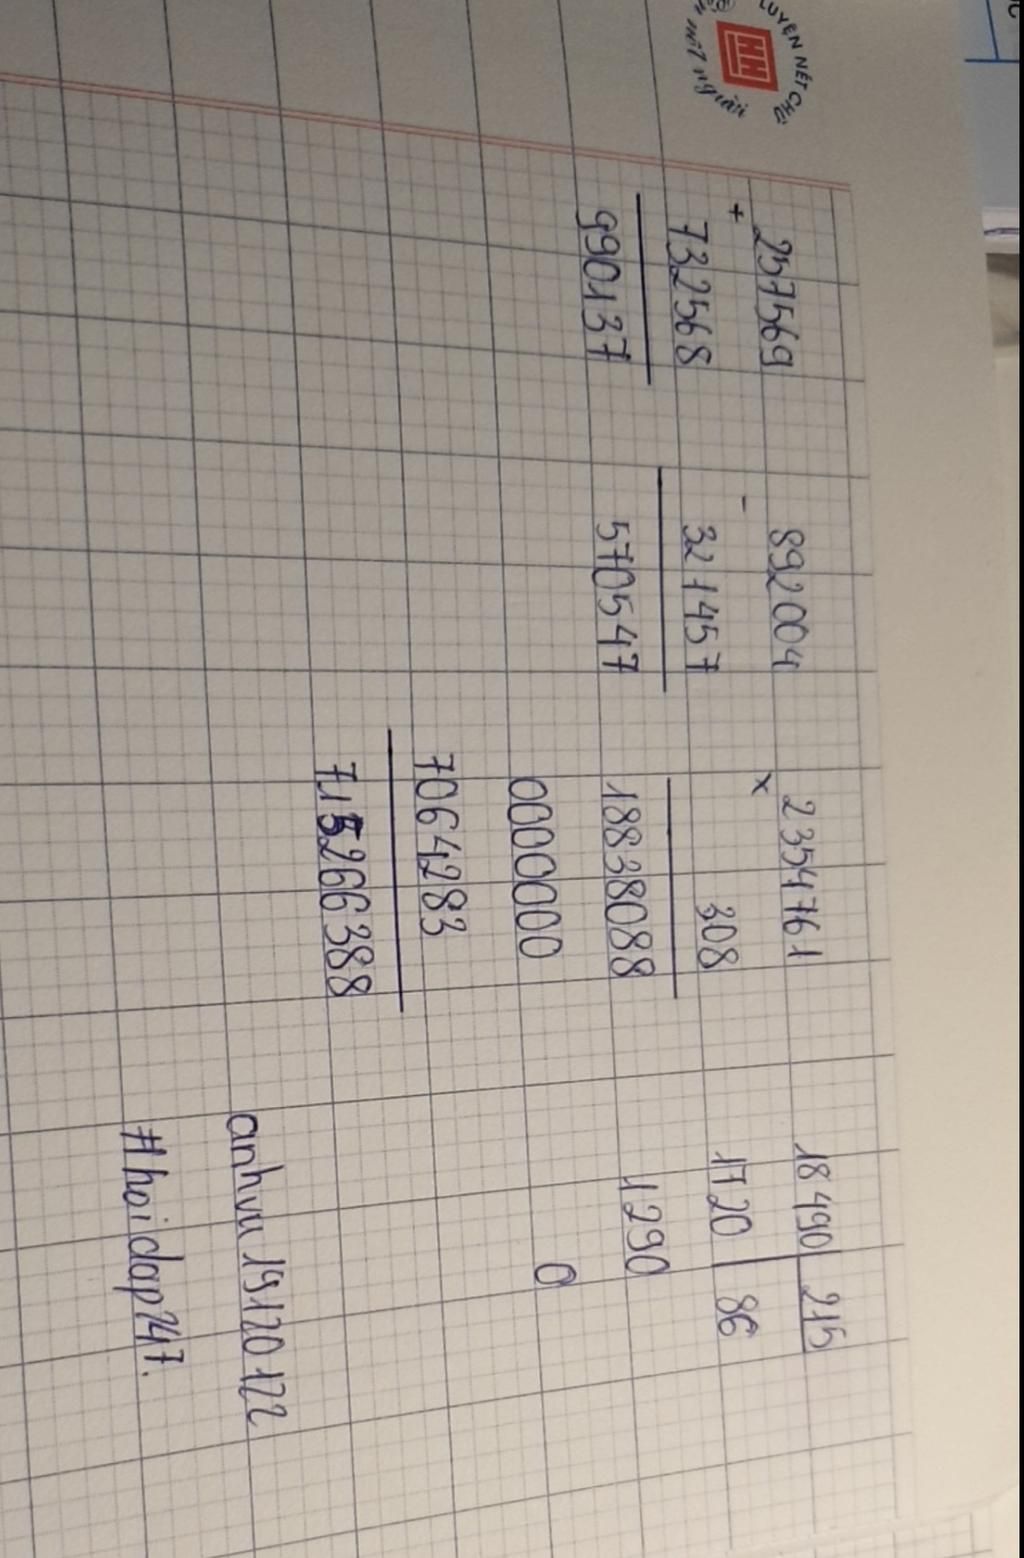 LUYỆN NÉT CHỮ
HH
nết người
257569
+
732568
990137
892004
-
321457
570547
2354761
x
308
18838088
0000000
7064283
715266388
18490 215
1720 86
1290
0
anhvu19120122
#hoidap247.